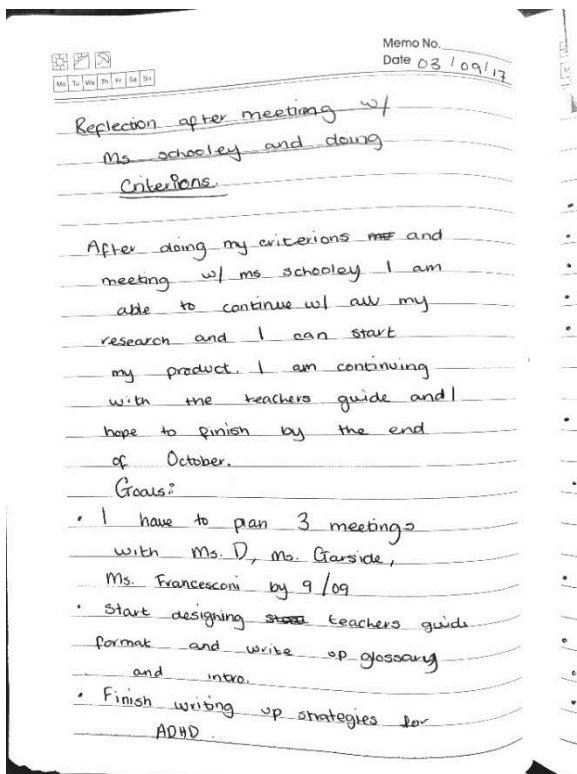 Memo No.
Date 03/09/17
Mo Tu We Th Fr Sa Su
Reflection after meeting w/
Ms schooley and doing
Criterions.
After doing my criterions and
meeting w/ ms schooley I am
able to continue w/ all my
research and I can start
my product. I am continuing
with the teachers guide and I
hope to finish by the end
of October.
Goals:
• I have to plan 3 meetings
with Ms. D, Ms. Garside,
Ms. Francesconi by 9/09
• Start designing teachers guide
format and write up glossary
and intro.
• Finish writing up strategies for
ADHD.